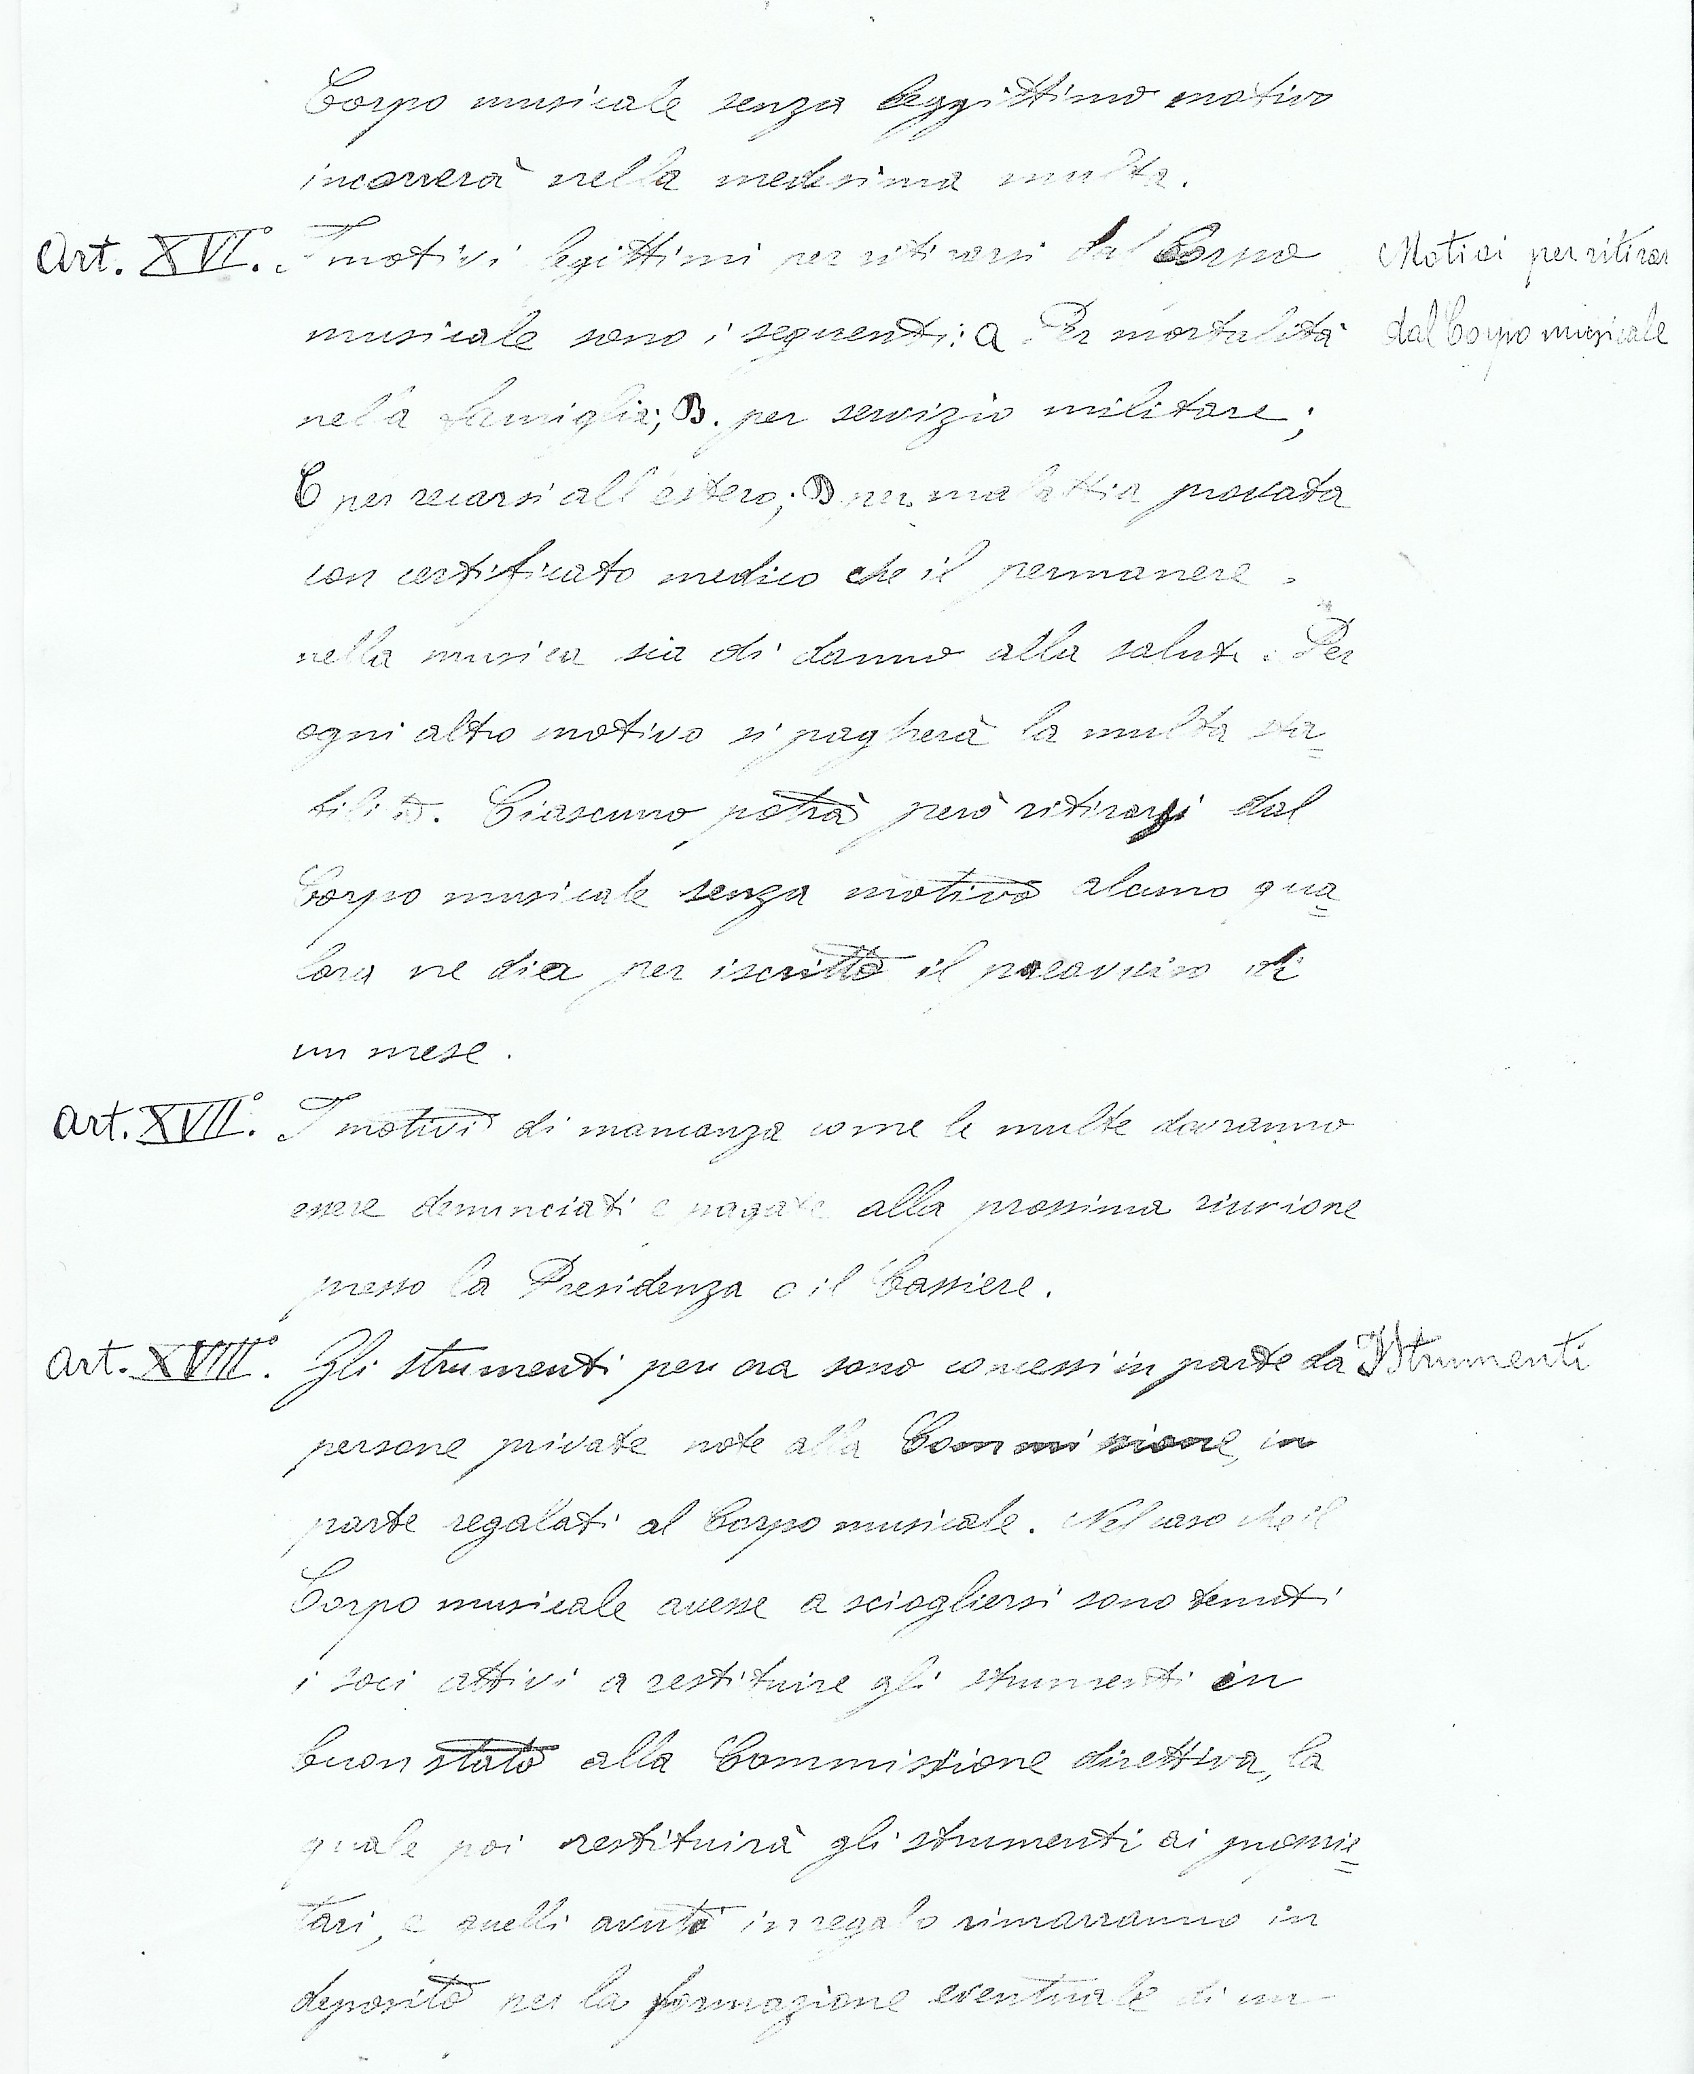 Corpo musicale senza leggittimo motivo
incorrerà nella medesima multa.
Art. XVI.° I motivi legittimi per ritirarsi dal Corpo Motivi per ritirar
musicale sono i seguenti: a Per mortalità dal Corpo musicale
nella famiglia; B. per servizio militare;
C per recarsi all'estero; D per malattia provata
con certificato medico che il permanere
nella musica sia di danno alla salute. Per
ogni altro motivo si pagherà la multa sta=
bilita. Ciascuno potrà però ritirarsi dal
Corpo musicale senza motivo alcuno qua=
lora ne dia per iscritto il preavviso di
un mese.
Art. XVII.° I motivi di mancanza come le multe dovranno
essere denunciati e pagate alla prossima riunione
presso la Presidenza o il Cassiere.
Art. XVIII.° Gli strumenti per ora sono concessi in parte da Istrumenti
persone private note alla Commissione, in
parte regalati al Corpo musicale. Nel caso che il
Corpo musicale avesse a sciogliersi sono tenuti
i soci attivi a restituire gli strumenti in
buon stato alla Commissione direttiva, la
quale poi restituirà gli strumenti ai proprie=
tari, e quelli avuto in regalo rimarranno in
deposito per la formazione eventuale di un